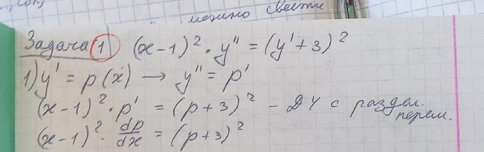 можно свести
Задача 1 (x-1)² · y'' = (y'+3)²
1) y' = p(x) → y'' = p'
(x-1)² · p' = (p+3)² - ДУ с раздел. перем.
(x-1)² · dp/dx = (p+3)²